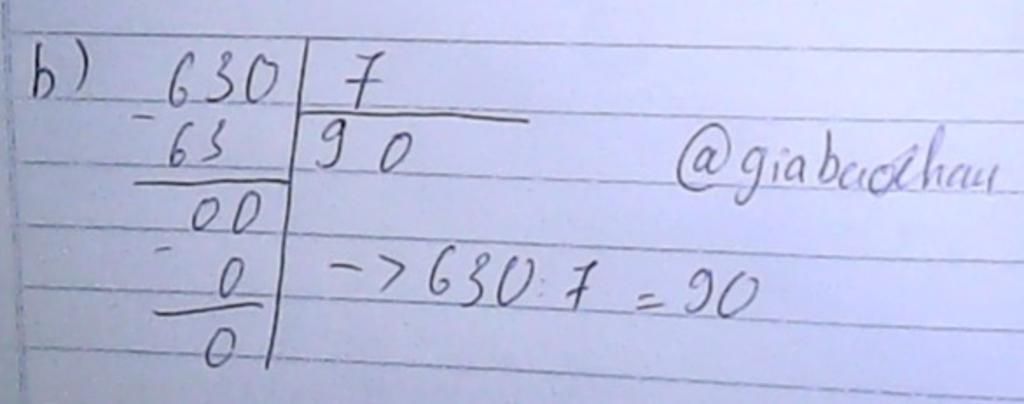 b) 630 7
- 63 90
@giabaochau
00
- 0
-> 630 : 7 = 90
0